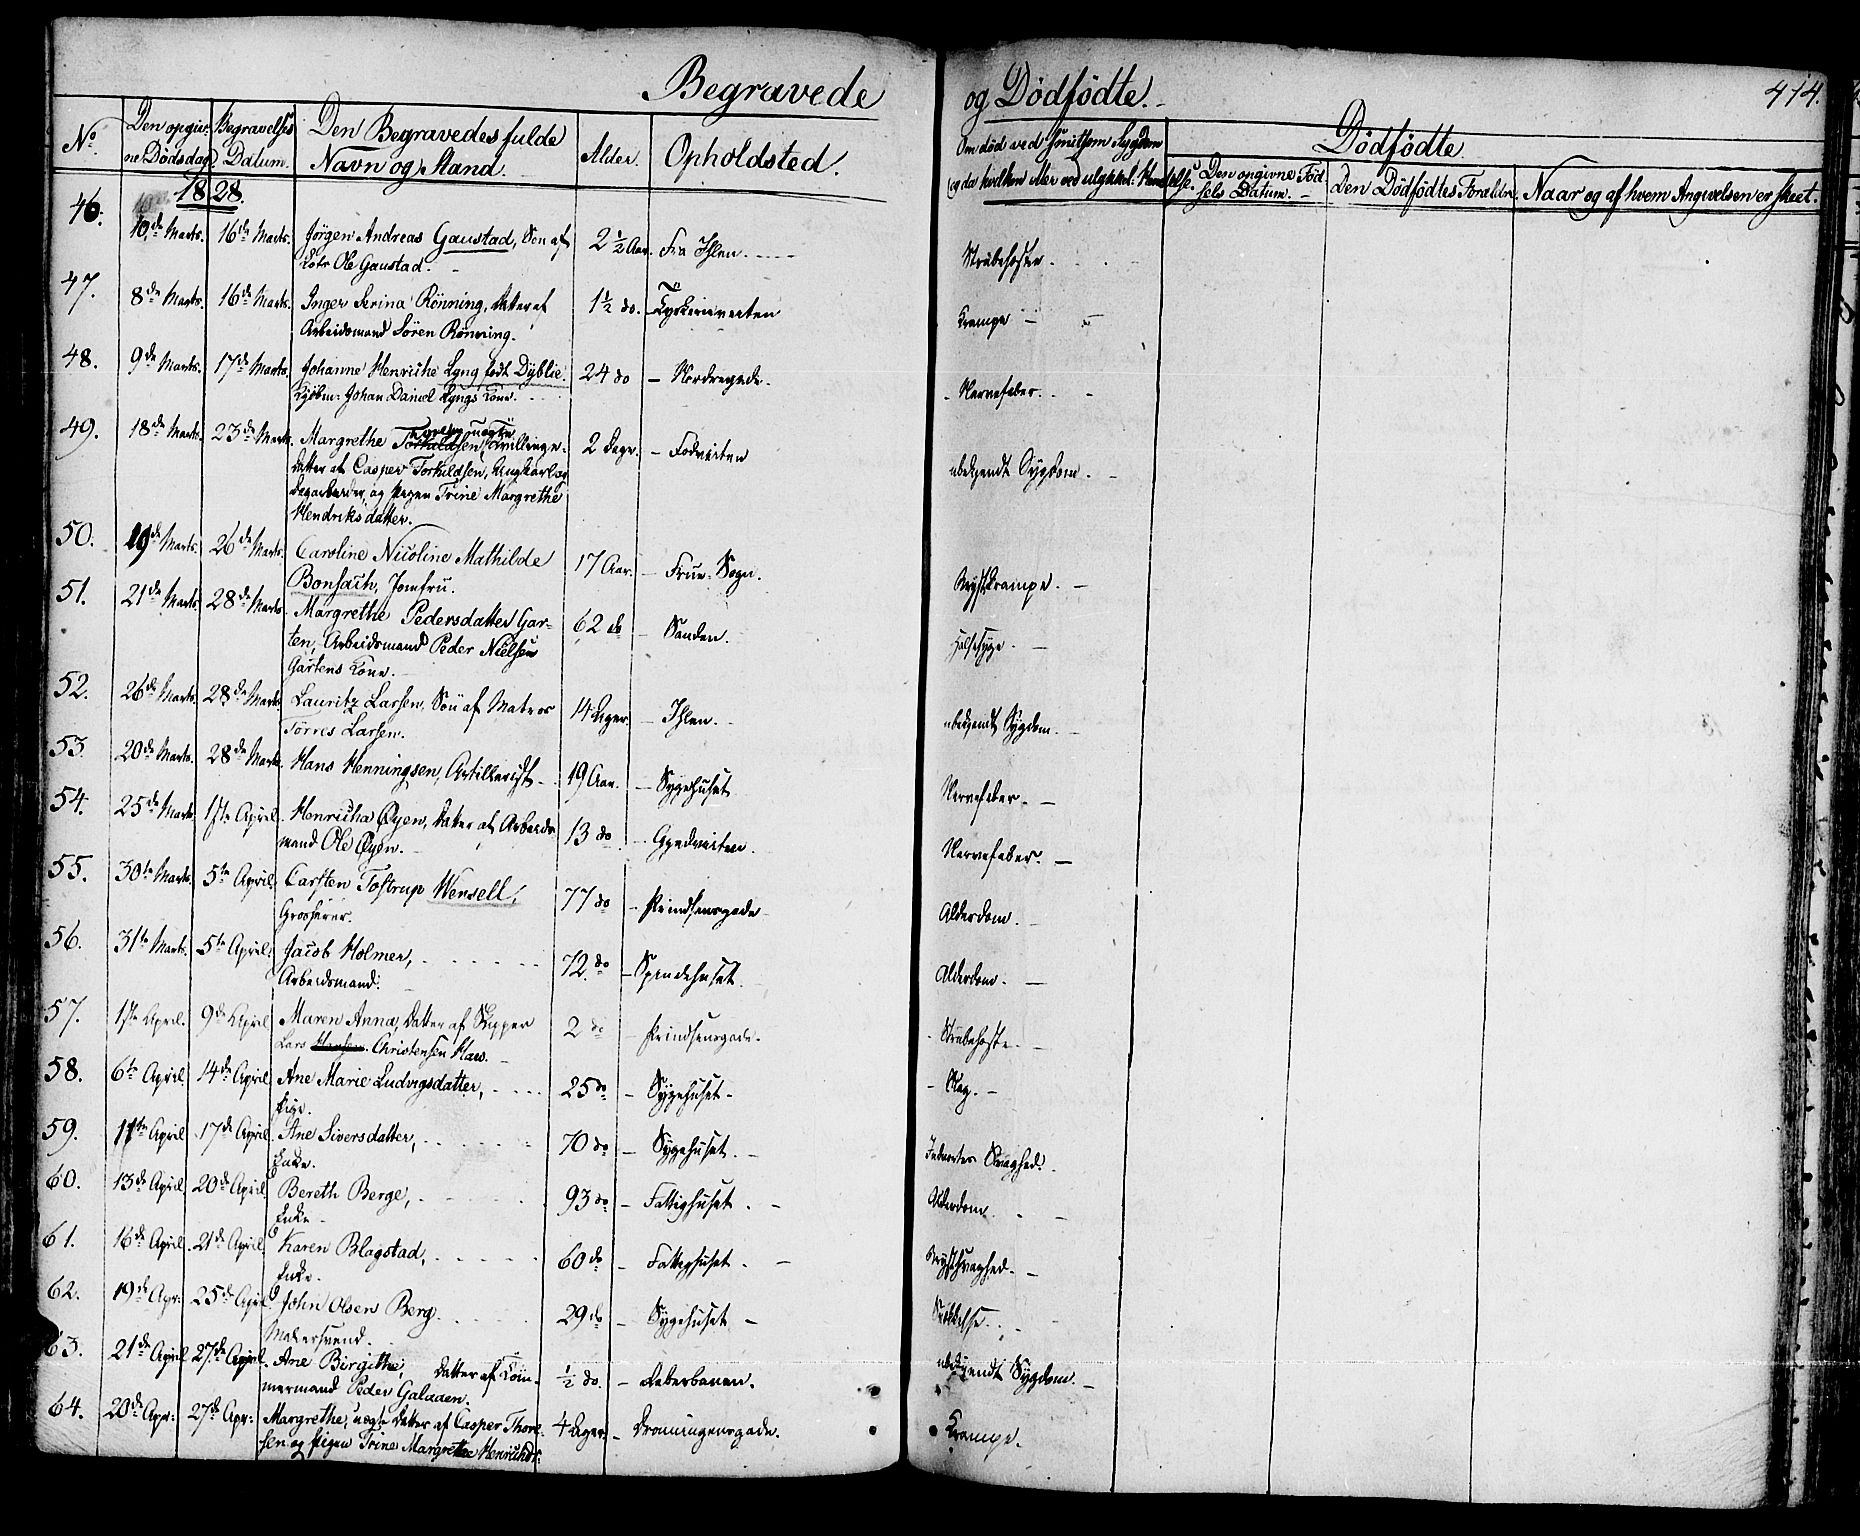 Begravede og Dødfødte. 414.
No. Den opgivne Dødsdag. Begravelses Datum. Den Begravedes fulde Navn og Stand. Alder. Opholdsted. Om død ved smitsom Sygdom
Dødfødte.
Den opgivne Fødsels Datum. Den Dødfødtes Forældre. Naar og af hvem Angivelsen er skeet.
1828.
46. 10de Marts. 16de Marts. Jørgen Andreas Gaustad, Søn af 2 1/2 Aar. Fra Ihlen. Strubehoste.
Ole Gaustad.
47. 8de Marts. 16de Marts. Inger Serina Rønning, Datter af 1 1/2 do. Krampe
Arbeidsmand Søren Rønning.
48. 9de Marts. 17de Marts. Johanne Henriche Lyng født Dyblie. 24 do Nordregade. Nervefeber.
Kjøbm: Johan Daniel Lyngs Kone.
49. 18de Marts. 23de Marts. Margrethe Torkildsen, Tvillinge- 2 Dage. Fodveiten ubekjendt Sygdom.
Datter af Casper Torkildsen, Ungkarl og
Dagarbeider, og Pigen Trine Margrethe
Hendriksdatter.
50. 19de Marts. 26de Marts. Caroline Nicoline Mathilde 17 Aar. Frue-Sogn. Brystkrampe.
Bonsach, Jomfru.
51. 21de Marts 28de Marts Margrethe Pedersdatter Gar- 62 do Sanden. Halssyge.
ten, Arbeidsmand Peder Nielsen
Gartens Kone.
52. 26de Marts. 28de Marts. Lauritz Larsen, Søn af Matros 14 Uger. Ihlen. ubekjendt Sygdom.
Torres Larsen.
53. 20de Marts. 28de Marts. Hans Henningsen, Artillerist 19 Aar. Sygehuset Nervefeber.
54. 25de Marts. 1ste April. Henricha Øyen, Datter af Arbeids- 13 do Gjedveiten. Nervefeber.
mand Ole Øyen.
55. 30te Marts. 5te April. Carsten Tostrup Wensell, 77 do Prindsensgade Alderdom.
Grosserer.
56. 31te Marts. 5te April. Jacob Holmer, 72 do Spindehuset. Alderdom.
Arbeidsmand.
57. 1ste April. 9de April Maren Anna, Datter af Skipper 2 do Prindsensgade. Strubehoste.
Lars Hansen. Christensen Haw.
58. 6te April 14de April Ane Marie Ludvigsdatter, 25 do Sygehuset
Pige.
59. 11te April 17de April Ane Siversdatter, 70 do Sygehuset. Indvortes Svaghed.
Enke.
60. 13de April. 20de April Bereth Berge, 93 do Fattighuset. Alderdom.
Enke
61. 16de April. 21de April Karen Blagstad, 60 do Fattighuset. Brystsvaghed.
Enke.
62. 19de Apr: 25de April John Olsen Berg 29 do Sygehuset
Malersvend.
63. 21de April 27de April. Ane Birgithe, Datter af Tøm- 1/2 do. Reberbanen. ubekjendt Sygdom.
mermand Peder Galaaen.
64. 20de Apr: 27de Apr: Margrethe, uægte Datter af Casper Thore- 4 Uger. Dronningensgade. Krampe.
sen og Pigen Trine Margrethe Henrichsd: